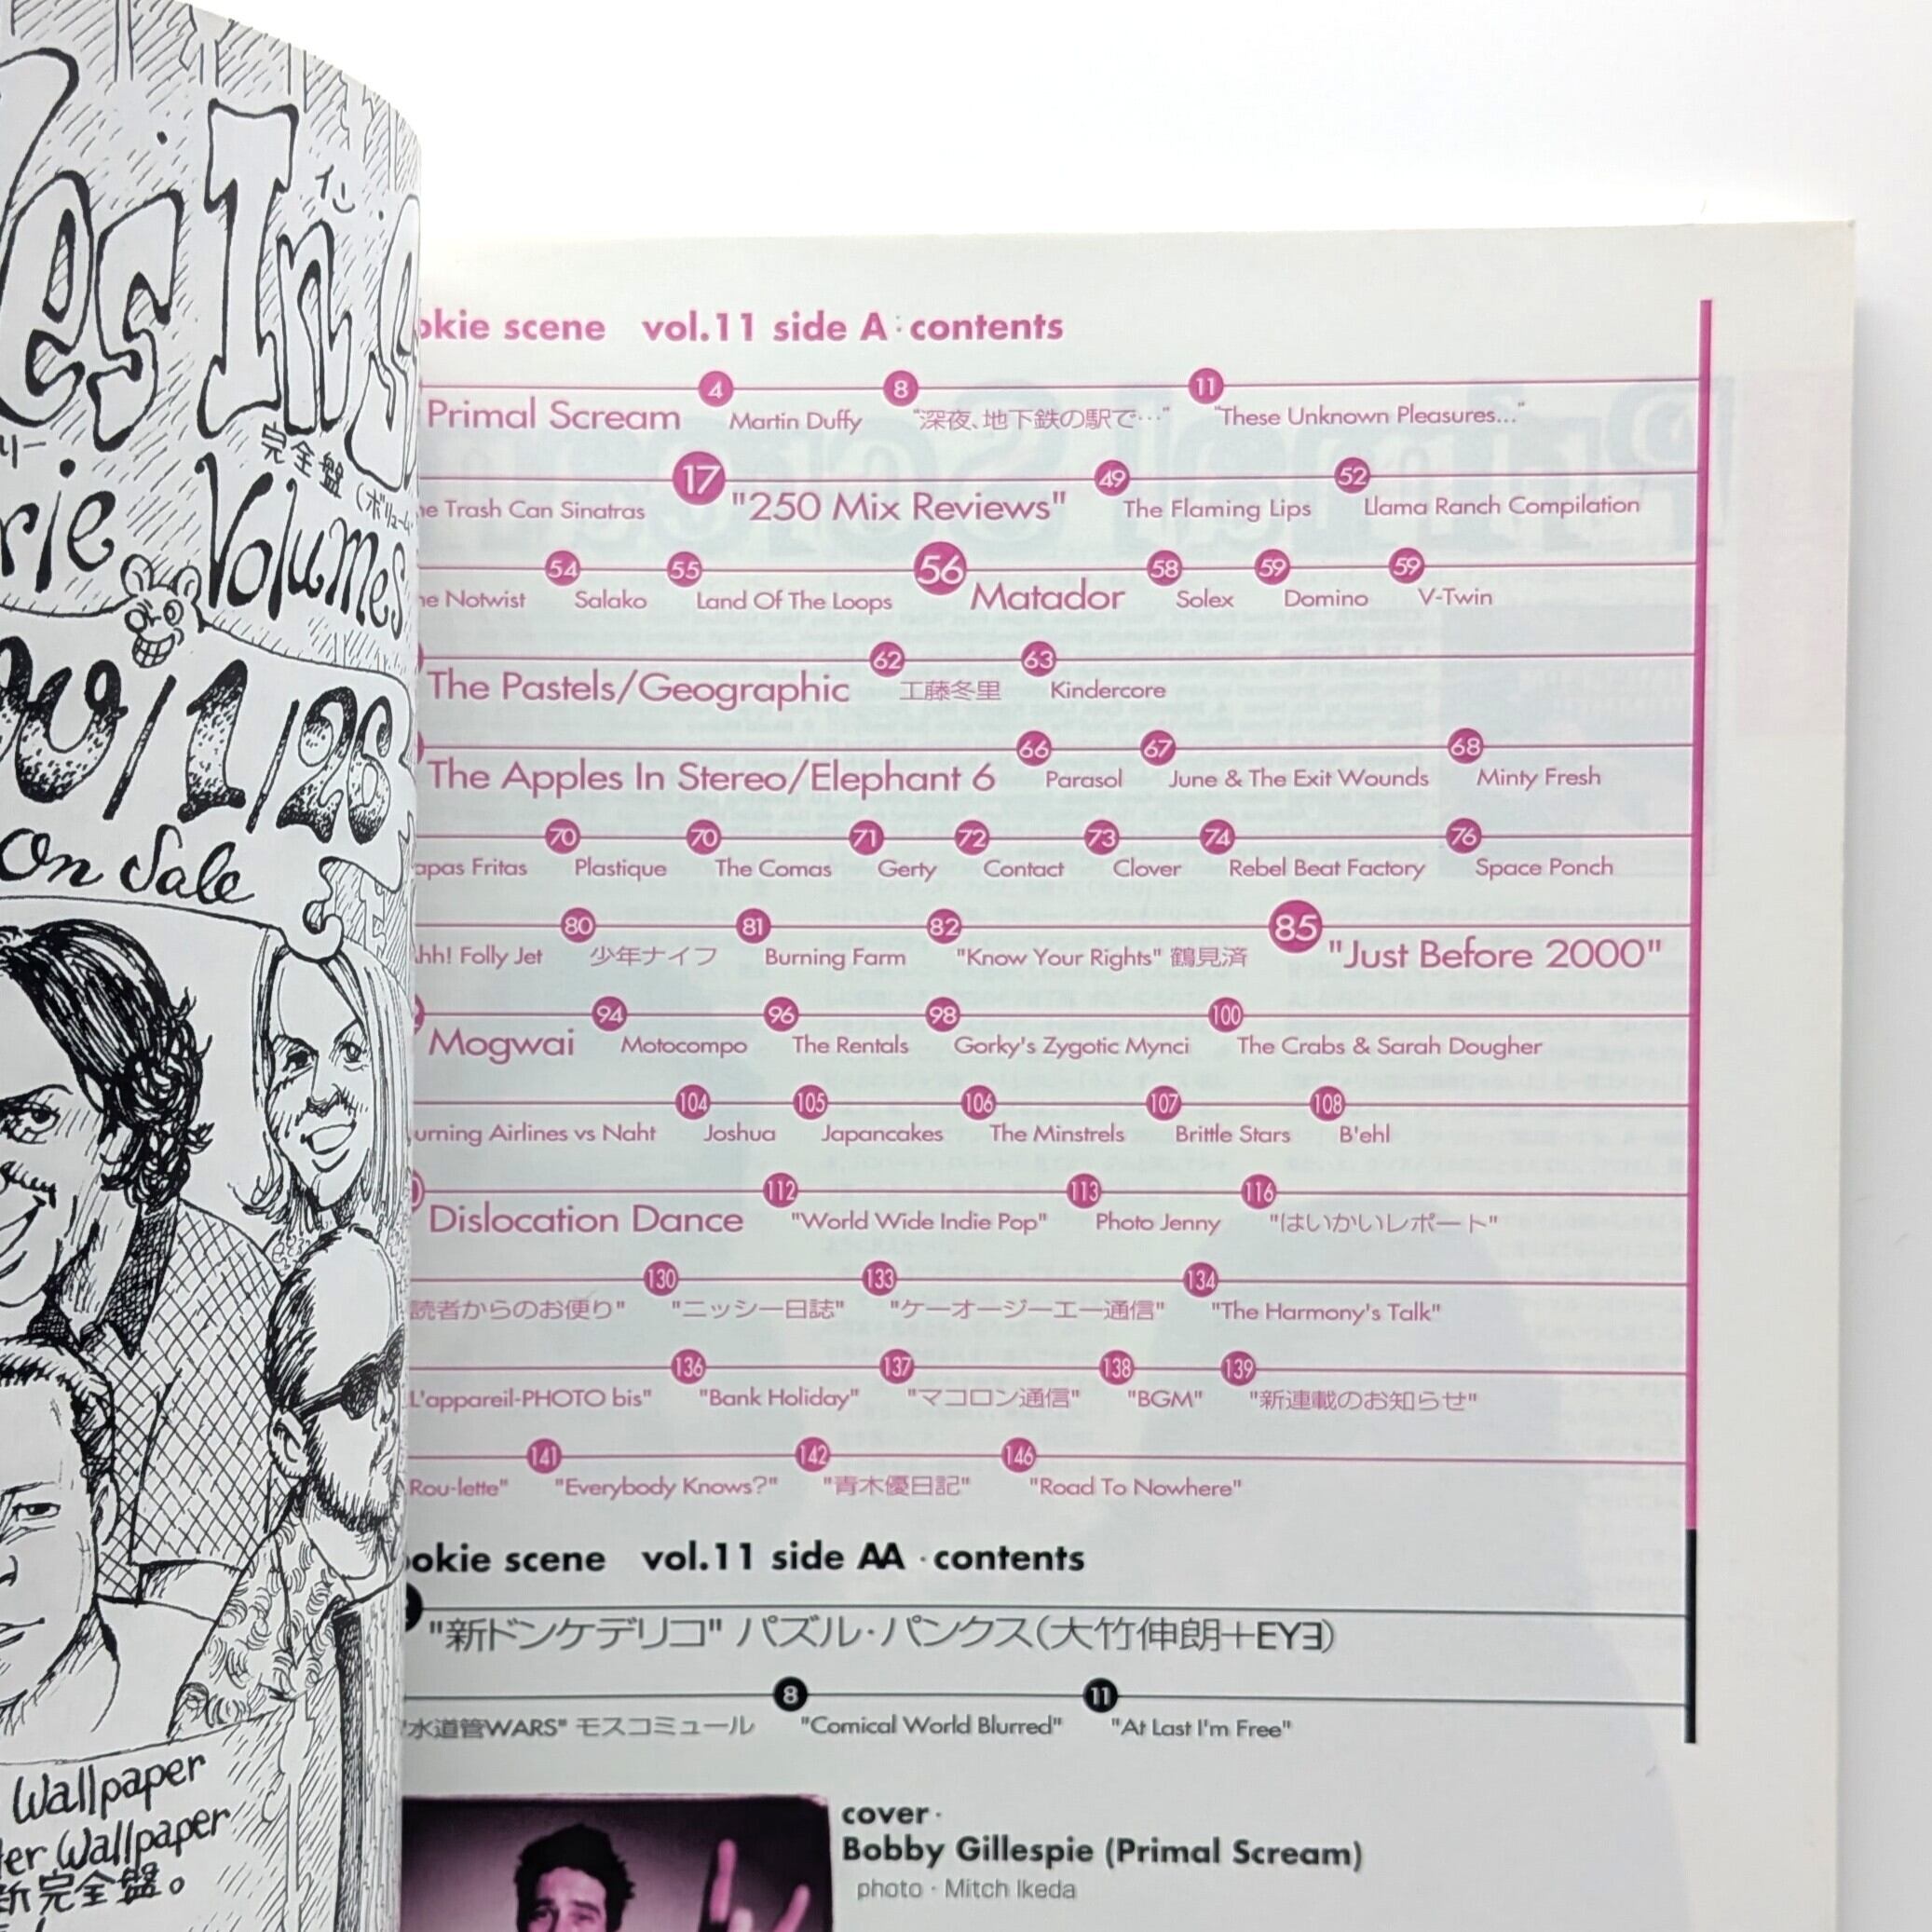 es In
イン
リー
完全盤
rie Volumes
/1/26
On Sale
Wallpaper
er Wallpaper
新完全盤。
okie scene vol.11 side A contents
4 8 11
Primal Scream Martin Duffy "深夜、地下鉄の駅で…" "These Unknown Pleasures..."
17 49 52
e Trash Can Sinatras "250 Mix Reviews" The Flaming Lips Llama Ranch Compilation
54 55 56 58 59 59
e Notwist Salako Land Of The Loops Matador Solex Domino V-Twin
62 63
The Pastels/Geographic 工藤冬里 Kindercore
66 67 68
The Apples In Stereo/Elephant 6 Parasol June & The Exit Wounds Minty Fresh
70 70 71 72 73 74 76
apas Fritas Plastique The Comas Gerty Contact Clover Rebel Beat Factory Space Ponch
80 81 82 85
hh! Folly Jet 少年ナイフ Burning Farm "Know Your Rights" 鶴見済 "Just Before 2000"
94 96 98 100
Mogwai Motocompo The Rentals Gorky's Zygotic Mynci The Crabs & Sarah Dougher
104 105 106 107 108
urning Airlines vs Naht Joshua Japancakes The Minstrels Brittle Stars B'ehl
112 113 116
Dislocation Dance "World Wide Indie Pop" Photo Jenny "はいかいレポート"
130 133 134
読者からのお便り" "ニッシー日誌" "ケーオージーエー通信" "The Harmony's Talk"
136 137 138 139
L'appareil-PHOTO bis" "Bank Holiday" "マコロン通信" "BGM" "新連載のお知らせ"
141 142 146
Rou-lette" "Everybody Knows?" "青木優日記" "Road To Nowhere"
okie scene vol.11 side AA · contents
"新ドンケデリコ" パズル・パンクス(大竹伸朗+EYƎ)
8 11
"水道管WARS" モスコミュール "Comical World Blurred" "At Last I'm Free"
cover ·
Bobby Gillespie (Primal Scream)
photo · Mitch Ikeda